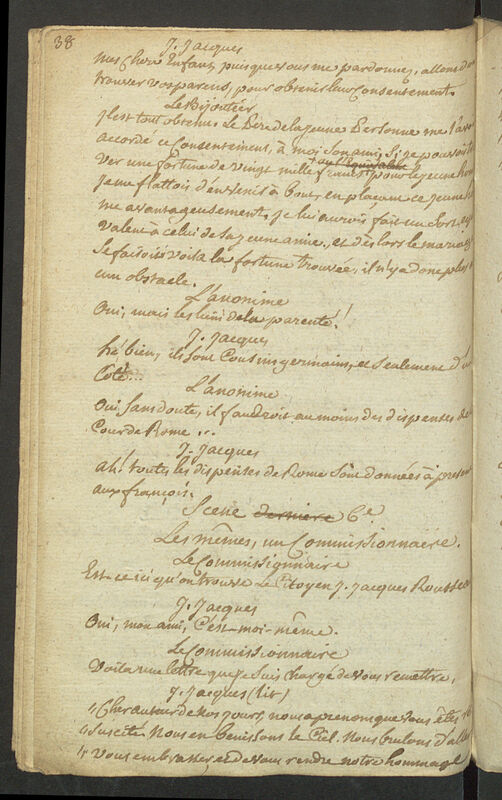 38
J. Jacques
mes Chers Enfans, puisque vous me pardonnez, allons donc
trouver vos parens, pour obtenir leur Consentement.
Le Bijoutier
Il est tout obtenu. Le Père de la jeune Personne me l'avoit
accordé ce Consentement, à moi son ami, si je pouvois trou
ver une fortune de vingt mille francs ou l'Equivalent pour le jeune homme
je me flattois d'en venir à bout, en plaçant ce jeune homme
me avantageusement. je lui aurois fait un sort équi
valent à celui de sa jeune amie, et dès lors le mariage
se faisoit. voilà la fortune trouvée, il n'y a donc plus
cun obstacle.
L'anonime
Oui, mais les liens de la parenté!!
J. Jacques
hé bien, ils sont Cousins germains, et seulement d'un
Côté...
L'anonime
Oui sans doute, il faudroit au moins des dispenses de
Cour de Rome...
J. Jacques
ah! toutes les dispenses de Rome sont données à présent
aux françois.
Scene derniere 6e.
Les mêmes, un Commissionnaire.
Le Commissionnaire
Est-ce ici qu'on trouve le Citoyen J. Jacques Rousseau
J. Jacques
Oui, mon ami, C'est-moi-même.
Le Commissionnaire
Voila une lettre que je suis chargé de vous remettre,
J. Jacques (lit)
"Cher auteur de nos jours, nous aprenons que vous êtes
"suscité. Nous en benissons le Ciel. Nous brulons d'aller
"vous embrasser, et de vous rendre notre hommage